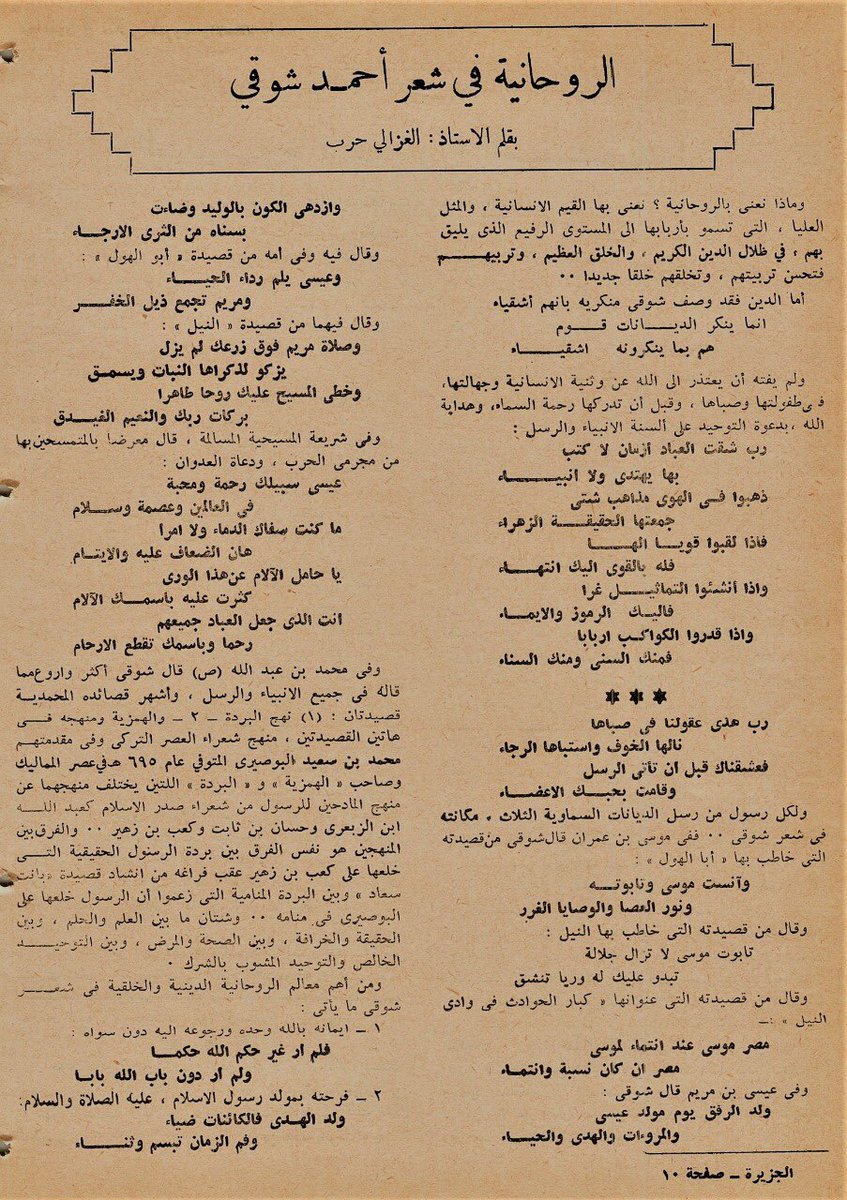 الروحانية في شعر أحمد شوقي
بقلم الاستاذ : الغزالي حرب
وماذا نعنى بالروحانية ؟ نعنى بها القيم الانسانية ، والمثل
العليا ، التى تسمو بأربابها الى المستوى الرفيع الذى يليق
بهم ، في ظلال الدين الكريم ، والخلق العظيم ، وتربيهم
فتحسن تربيتهم ، وتخلقهم خلقا جديدا ٠٠
أما الدين فقد وصف شوقى منكريه بانهم أشقياء
انما ينكر الديانات قوم
هم بما ينكرونه اشقياء
ولم يفته أن يعتذر الى الله عن وثنية الانسانية وجهالتها،
فى طفولتها وصباها ، وقبل أن تدركها رحمة السماء، وهداية
الله ،بدعوة التوحيد على ألسنة الانبياء والرسل :
رب شقت العباد أزمان لا كتب
بها يهتدى ولا انبياء
ذهبوا فى الهوى مذاهب شتى
جمعتها الحقيقة الزهراء
فاذا لقبوا قويا الها
فله بالقوى اليك انتهاء
واذا أنشئوا التماثيل غرا
فاليك الرموز والايماء
واذا قدروا الكواكب اربابا
فمنك السنى ومنك السناء
✶ ✶ ✶
رب هذى عقولنا فى صباها
نالها الخوف واستباها الرجاء
فعشقناك قبل أن تأتى الرسل
وقامت بحبك الاعضاء
ولكل رسول من رسل الديانات السماوية الثلاث ، مكانته
فى شعر شوقى ٠٠ ففى موسى بن عمران قال شوقى من قصيدته
التى خاطب بها « أبا الهول » :
وآنست موسى وتابوته
ونور العصا والوصايا الغرر
وقال من قصيدته التى خاطب بها النيل :
تابوت موسى لا تزال جلالة
تبدو عليك له وريا تنشق
وقال من قصيدته التى عنوانها « كبار الحوادث فى وادى
النيل » :ـ
مصر موسى عند انتماء لموسى
مصر ان كان نسبة وانتماء
وفى عيسى بن مريم قال شوقى :
ولد الرفق يوم مولد عيسى
والمروءات والهدى والحياء
وازدهى الكون بالوليد وضاءت
بسناه من الثرى الارجاء
وقال فيه وفى أمه من قصيدة « أبو الهول » :
وعيسى يلم رداء الحياء
ومريم تجمع ذيل الخفر
وقال فيهما من قصيدة « النيل » :
وصلاة مريم فوق زرعك لم يزل
يزكو لذكراها النبات ويسمق
وخطى المسيح عليك روحا طاهرا
بركات ربك والنعيم الغيدق
وفى شريعة المسيحية المسالمة ، قال معرضا بالمتمسحين بها
من مجرمى الحرب ، ودعاة العدوان :
عيسى سبيلك رحمة ومحبة
فى العالمين وعصمة وسلام
ما كنت سفاك الدماء ولا امرا
هان الضعاف عليه والايتام
يا حامل الآلام عن هذا الورى
كثرت عليه باسمك الآلام
انت الذى جعل العباد جميعهم
رحما وباسمك تقطع الارحام
وفى محمد بن عبد الله (ص) قال شوقى أكثر واروع مما
قاله فى جميع الانبياء والرسل ، وأشهر قصائده المحمدية
قصيدتان : (١) نهج البردة ـ ٢ ـ والهمزية ومنهجه فى
هاتين القصيدتين ، منهج شعراء العصر التركى وفى مقدمتهم
محمد بن سعيد البوصيرى المتوفي عام ٦٩٥ هـ في عصر المماليك
وصاحب « الهمزية » و « البردة » اللتين يختلف منهجهما عن
منهج المادحين للرسول من شعراء صدر الاسلام كعبد الله
ابن الزبعرى وحسان بن ثابت وكعب بن زهير ٠٠ والفرق بين
المنهجين هو نفس الفرق بين بردة الرسول الحقيقية التى
خلعها على كعب بن زهير عقب فراغه من انشاد قصيدة «بانت
سعاد » وبين البردة المنامية التى زعموا أن الرسول خلعها على
البوصيرى فى منامه ٠٠ وشتان ما بين العلم والحلم ، وبين
الحقيقة والخرافة ، وبين الصحة والمرض ، وبين التوحيد
الخالص والتوحيد المشوب بالشرك ٠
ومن أهم معالم الروحانية الدينية والخلقية فى شعر
شوقى ما يأتى :
١ ـ ايمانه بالله وحده ورجوعه اليه دون سواه :
فلم ار غير حكم الله حكما
ولم ار دون باب الله بابا
٢ ـ فرحته بمولد رسول الاسلام ، عليه الصلاة والسلام:
ولد الهدى فالكائنات ضياء
وفم الزمان تبسم وثناء
الجزيرة ـ صفحة ١٠